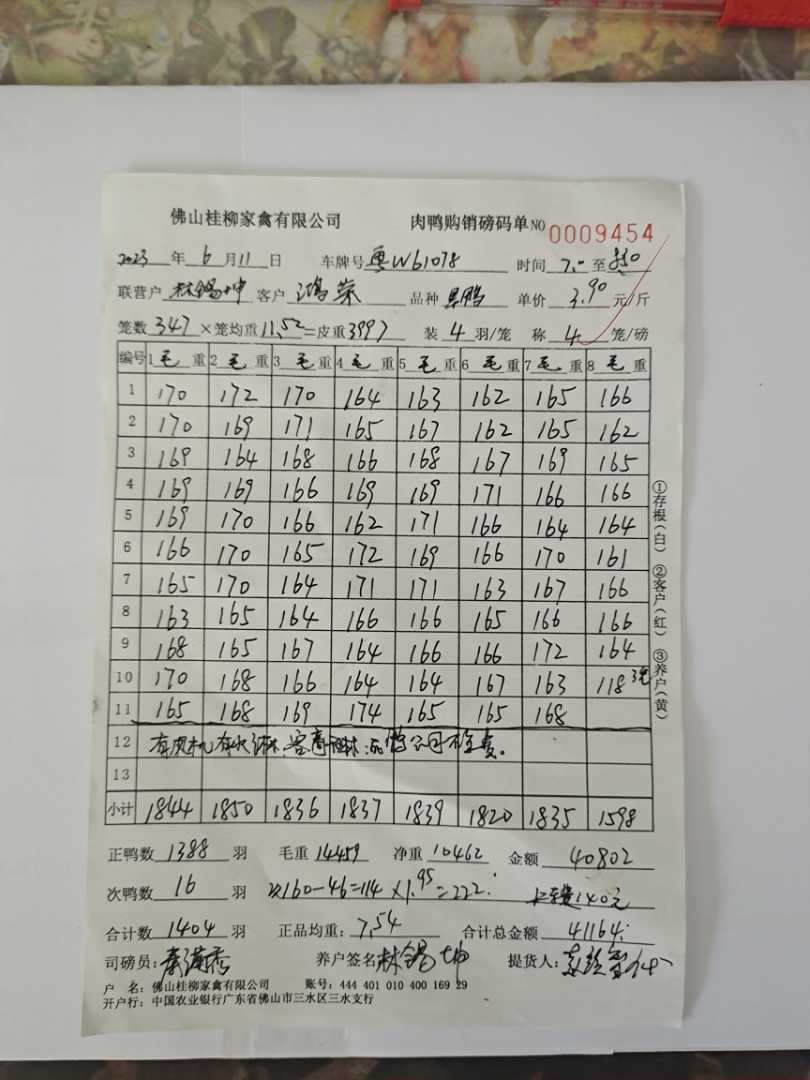 佛山桂柳家禽有限公司 肉鸭购销磅码单 NO 0009454
2023年6月11日 车牌号粤W61078 时间7.0至850
联营户林锡坤 客户鸿荣 品种 单价3.90元/斤
笼数347×笼均重11.52=皮重3997 装4羽/笼 称4笼/磅
编号 1毛重 2毛重 3毛重 4毛重 5毛重 6毛重 7毛重 8毛重
1 170 172 170 164 163 162 165 166
2 170 169 171 165 167 162 165 162
3 169 164 168 166 168 167 169 165
4 169 169 166 169 169 171 166 166
5 169 170 166 162 171 166 164 164
6 166 170 165 172 169 166 170 161
7 165 170 164 171 171 163 167 166
8 163 165 164 166 166 165 166 166
9 168 165 167 164 166 166 172 164
10 170 168 166 164 164 167 163 118
11 165 168 169 174 165 165 168
12 有风机有水淋
13
小计 1844 1850 1836 1837 1839 1820 1835 1598
正鸭数1388羽 毛重14459 净重10462 金额40802
次鸭数16羽 次160-46=114×1.95=222 140元
合计数1404羽 正品均重:7.54 合计总金额41164
司磅员: 养户签名林锡坤 提货人:
户 名:佛山桂柳家禽有限公司 账号:444 401 010 400 169 29
开户行:中国农业银行广东省佛山市三水区三水支行
①存根(白) ②客户(红) ③养户(黄)